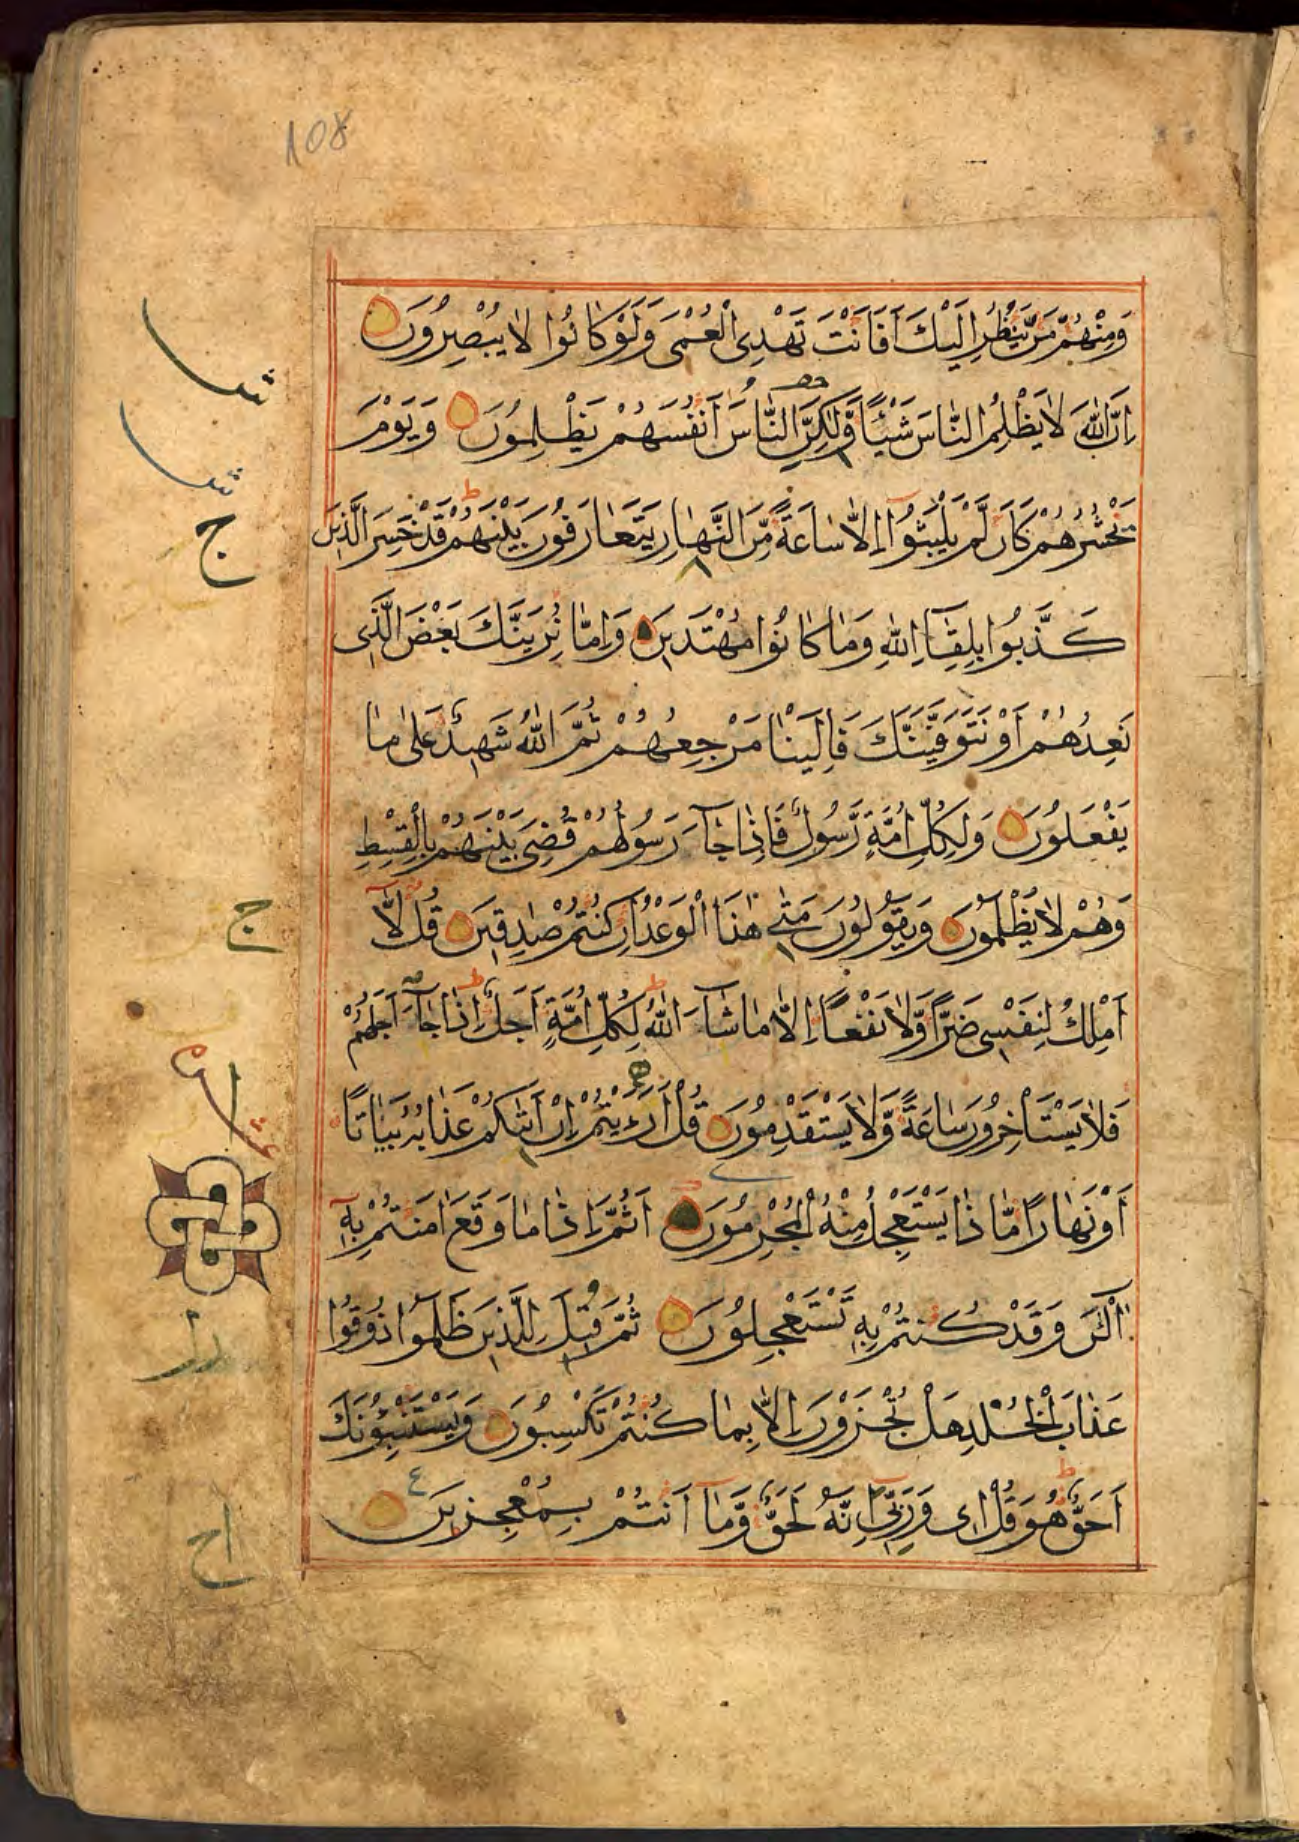 108
وَمِنْهُمْ مَنْ يَنْظُرُ اِلَيْكَ اَفَاَنْتَ تَهْدِى الْعُمْىَ وَلَوْ كَانُوا لَا يُبْصِرُونَ
اِنَّ اللّٰهَ لَا يَظْلِمُ النَّاسَ شَيْـًٔا وَّلٰكِنَّ النَّاسَ اَنْفُسَهُمْ يَظْلِمُونَ وَيَوْمَ
نَحْشُرُهُمْ كَاَنْ لَّمْ يَلْبَثُوٓا اِلَّا سَاعَةً مِّنَ النَّهَارِ يَتَعَارَفُونَ بَيْنَهُمْ قَدْ خَسِرَ الَّذِينَ
كَذَّبُوا بِلِقَٓاءِ اللّٰهِ وَمَا كَانُوا مُهْتَدِينَ وَاِمَّا نُرِيَنَّكَ بَعْضَ الَّذِى
نَعِدُهُمْ اَوْ نَتَوَفَّيَنَّكَ فَاِلَيْنَا مَرْجِعُهُمْ ثُمَّ اللّٰهُ شَهِيدٌ عَلٰى مَا
يَفْعَلُونَ وَلِكُلِّ اُمَّةٍ رَّسُولٌ فَاِذَا جَٓاءَ رَسُولُهُمْ قُضِىَ بَيْنَهُمْ بِالْقِسْطِ
وَهُمْ لَا يُظْلَمُونَ وَيَقُولُونَ مَتٰى هٰذَا الْوَعْدُ اِنْ كُنْتُمْ صٰدِقِينَ قُلْ لَّا
اَمْلِكُ لِنَفْسِى ضَرًّا وَّلَا نَفْعًا اِلَّا مَا شَٓاءَ اللّٰهُ لِكُلِّ اُمَّةٍ اَجَلٌ اِذَا جَٓاءَ اَجَلُهُمْ
فَلَا يَسْتَاْخِرُونَ سَاعَةً وَّلَا يَسْتَقْدِمُونَ قُلْ اَرَءَيْتُمْ اِنْ اَتٰىكُمْ عَذَابُهُ بَيَاتًا
اَوْ نَهَارًا مَّاذَا يَسْتَعْجِلُ مِنْهُ الْمُجْرِمُونَ اَثُمَّ اِذَا مَا وَقَعَ اٰمَنْتُمْ بِهِ
آلْـٰٔنَ وَقَدْ كُنْتُمْ بِهِ تَسْتَعْجِلُونَ ثُمَّ قِيلَ لِلَّذِينَ ظَلَمُوا ذُوقُوا
عَذَابَ الْخُلْدِ هَلْ تُجْزَوْنَ اِلَّا بِمَا كُنْتُمْ تَكْسِبُونَ وَيَسْتَنْبِـُٔونَكَ
اَحَقٌّ هُوَ قُلْ اِى وَرَبِّى اِنَّهُ لَحَقٌّ وَّمَٓا اَنْتُمْ بِمُعْجِزِينَ
ج
ج